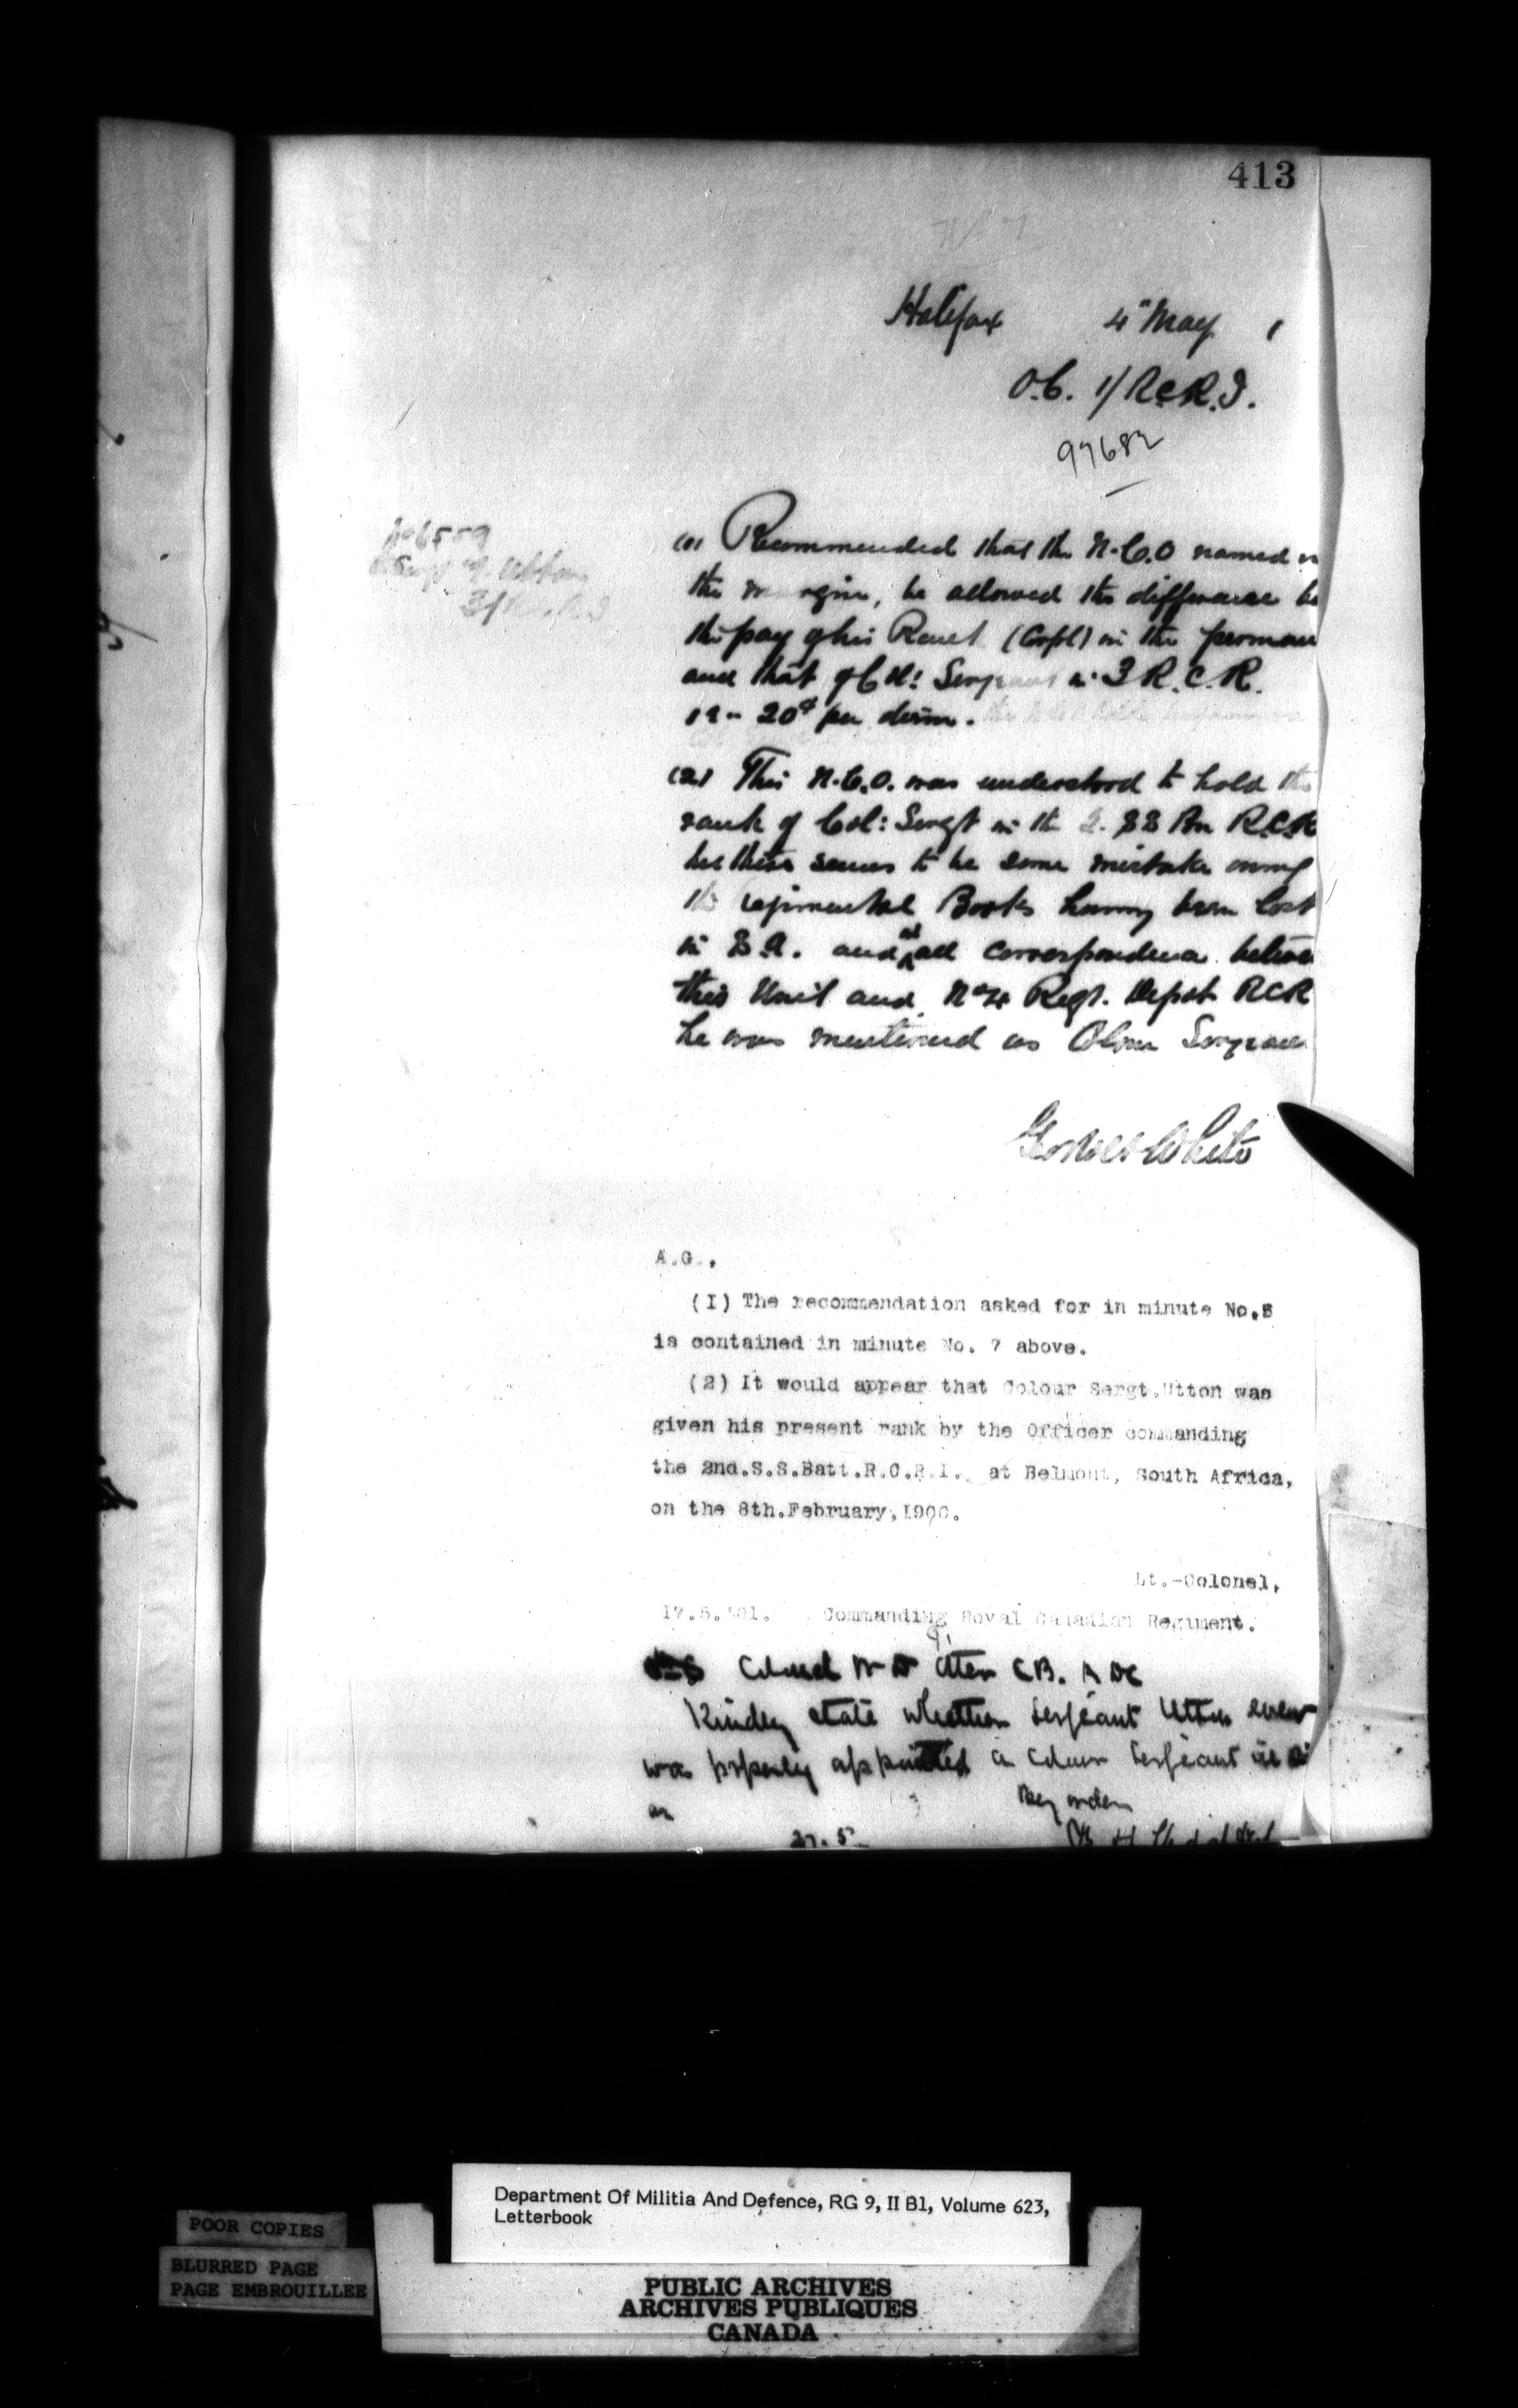 413
Halifax 4" May 1
O.C. 1/R.C.R.I.
97682
No 6559
Utton
(1) Recommended that the N.C.O named
the margin, be allowed the difference be
the pay of his Rank (Corpl) in the perman
and that of Col: Sergeant in 3 R.C.R.
20¢ per diem.
(2) This N.C.O. was understood to hold the
rank of Col: Sergt in the 2. SS Bn R.C.R
but there seems to be some mistake owing
the regimental Books having been lost
in S.A. and in all correspondence betwee
this Unit and No 4 Regt. Depot RCR
he was mentioned as Colour Sergean
White
A.G.,
(I) The recommendation asked for in minute No.5
is contained in minute No. 7 above.
(2) It would appear that Colour Sergt.Utton was
given his present rank by the Officer commanding
the 2nd.S.S.Batt.R.C.R.I. at Belmont, South Africa,
on the 8th.February,1900.
Lt.-Colonel,
17.5.'01. Commanding Royal Canadian Regiment.
Colonel W D Otter C.B. A DC
Kindly state whether Serjeant Utton ever
was properly appointed a Colour Serjeant
By order
27.5
Department Of Militia And Defence, RG 9, II B1, Volume 623,
Letterbook
POOR COPIES
BLURRED PAGE
PAGE EMBROUILLEE
PUBLIC ARCHIVES
ARCHIVES PUBLIQUES
CANADA